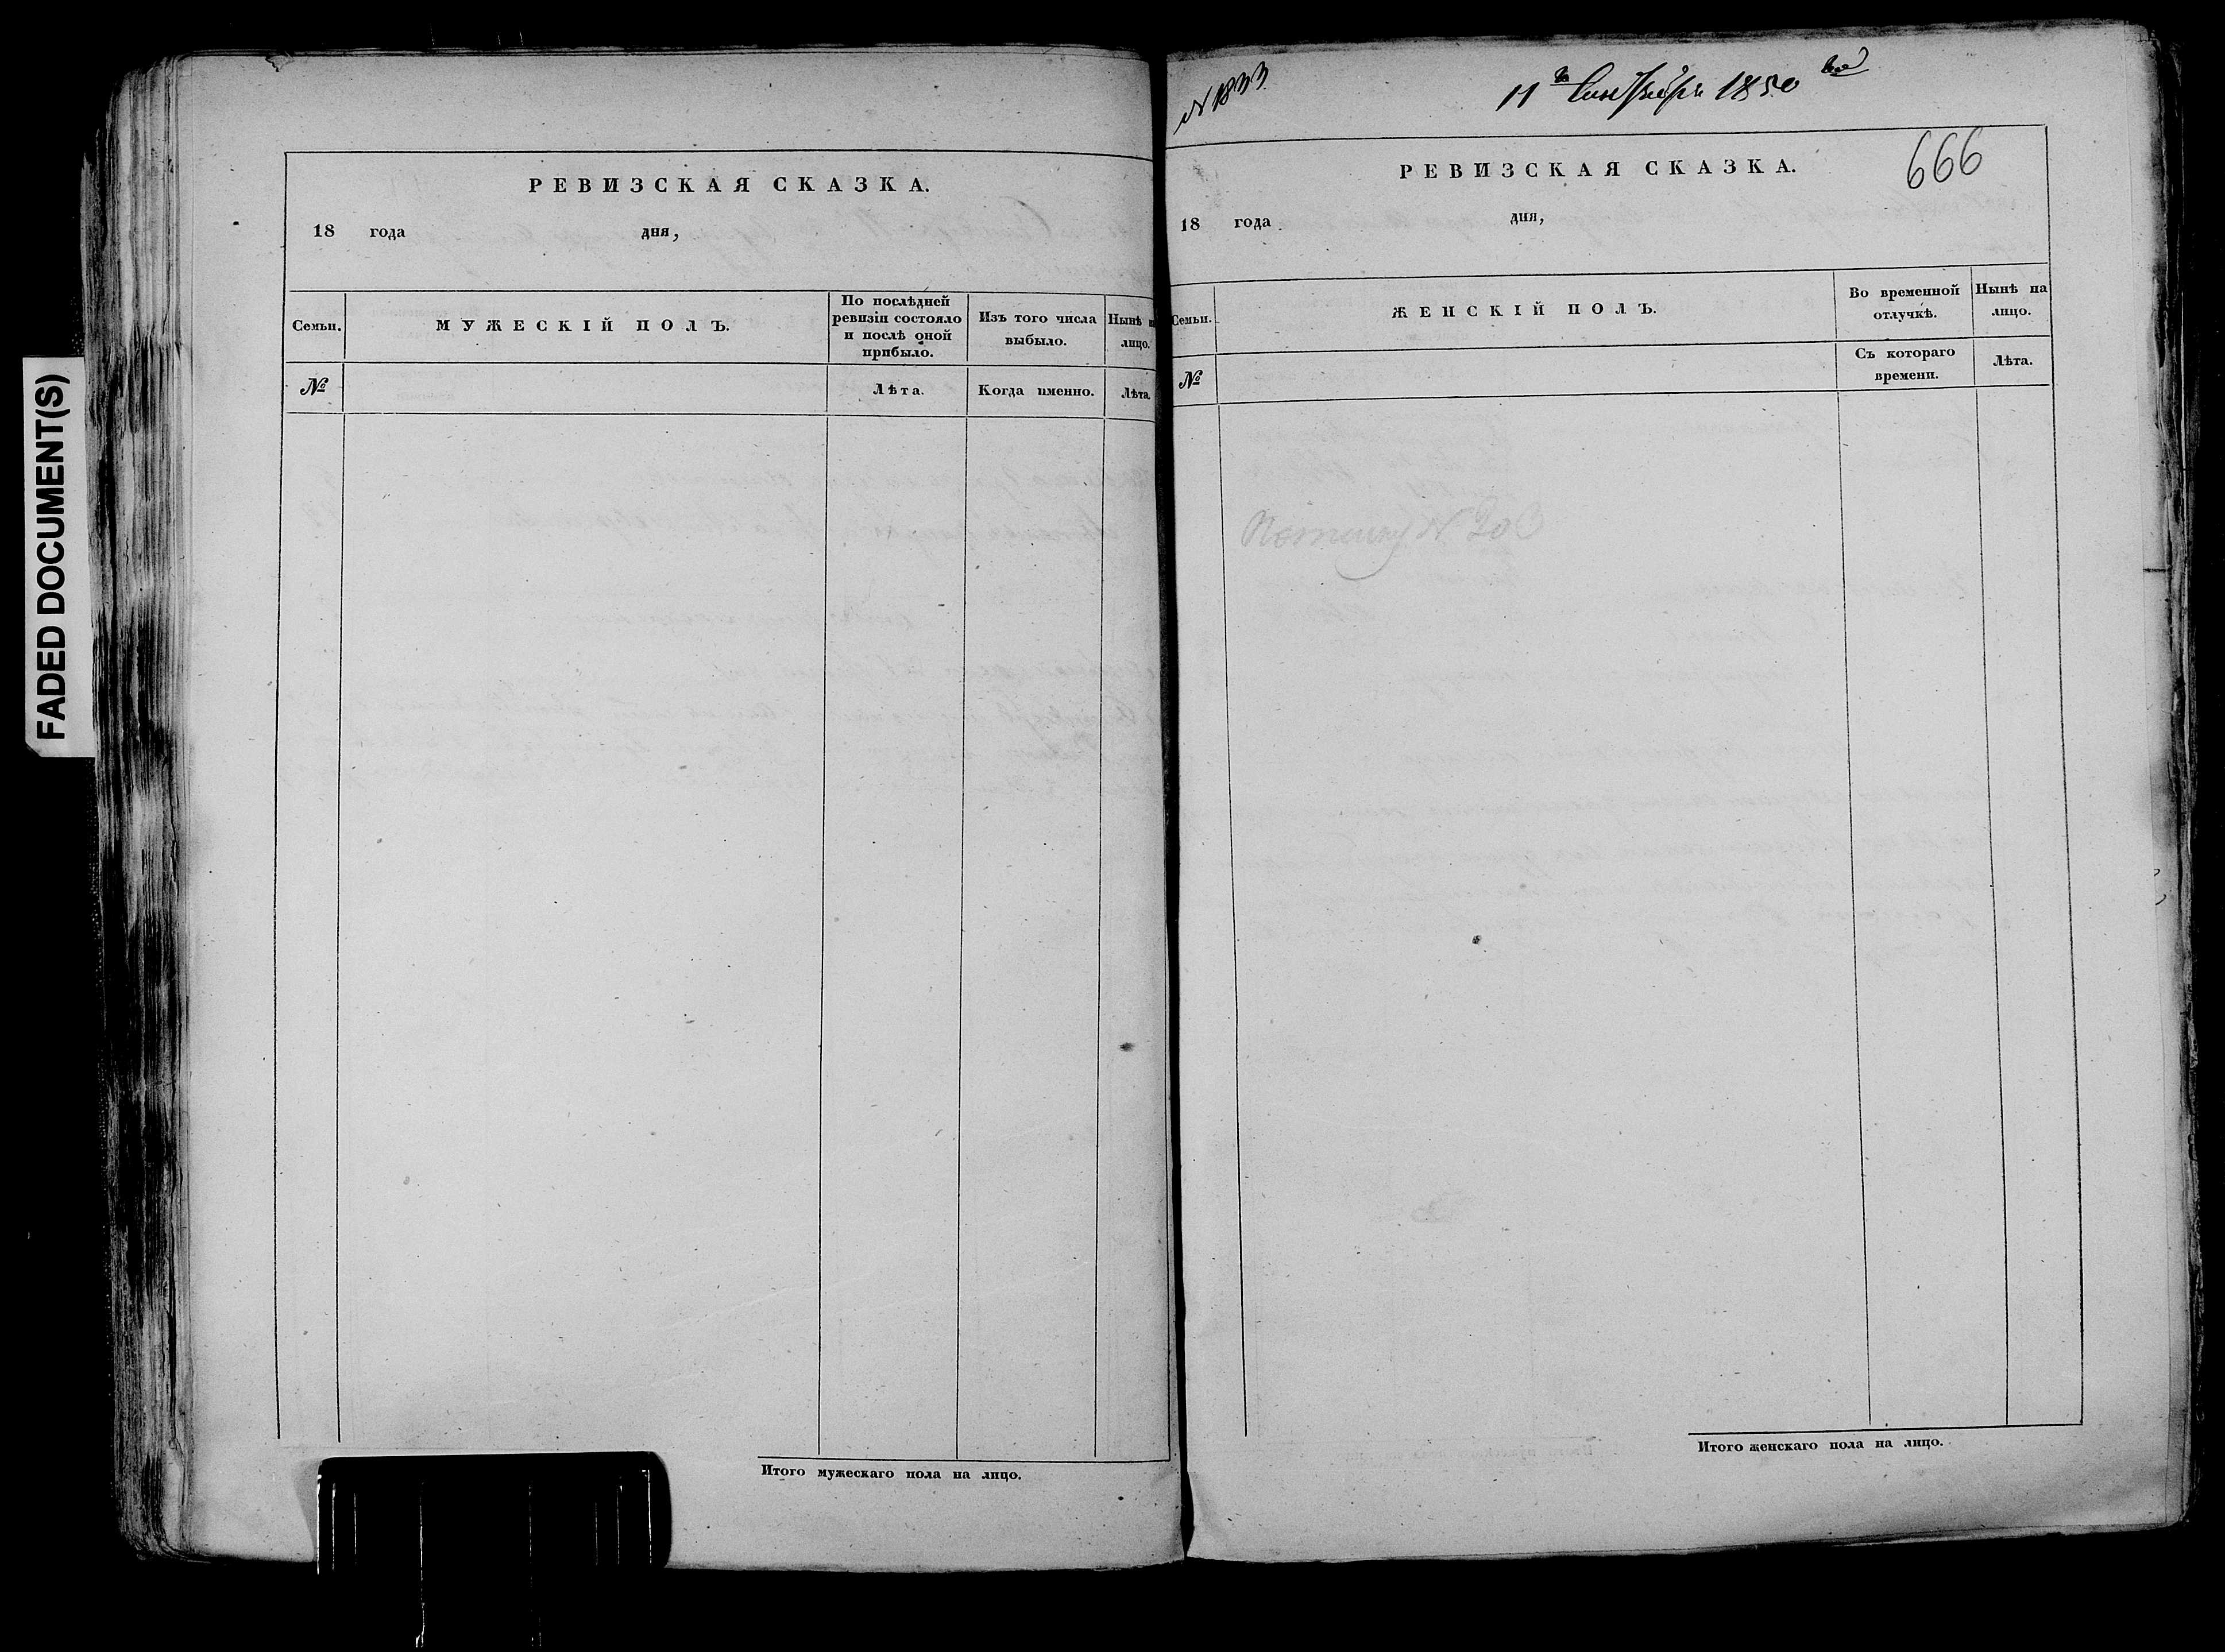 FADED DOCUMENT(S)
РЕВИЗСКАЯ СКАЗКА.
18 года дня,
Семьи.
МУЖЕСКІЙ ПОЛЪ.
По послѣдней
ревизіи состояло
и послѣ оной
прибыло.
Изъ того числа
выбыло.
Нынѣ н
лицо.
№
Лѣта.
Когда именно.
Лѣта.
Итого мужескаго пола на лицо.
N 1833
11 Сентября 1850
666
РЕВИЗСКАЯ СКАЗКА.
18 года дня,
Семьи.
ЖЕНСКІЙ ПОЛЪ.
Во временной
отлучкѣ.
Нынѣ на
лицо.
№
Съ котораго
времени.
Лѣта.
N. 203
Итого женскаго пола на лицо.